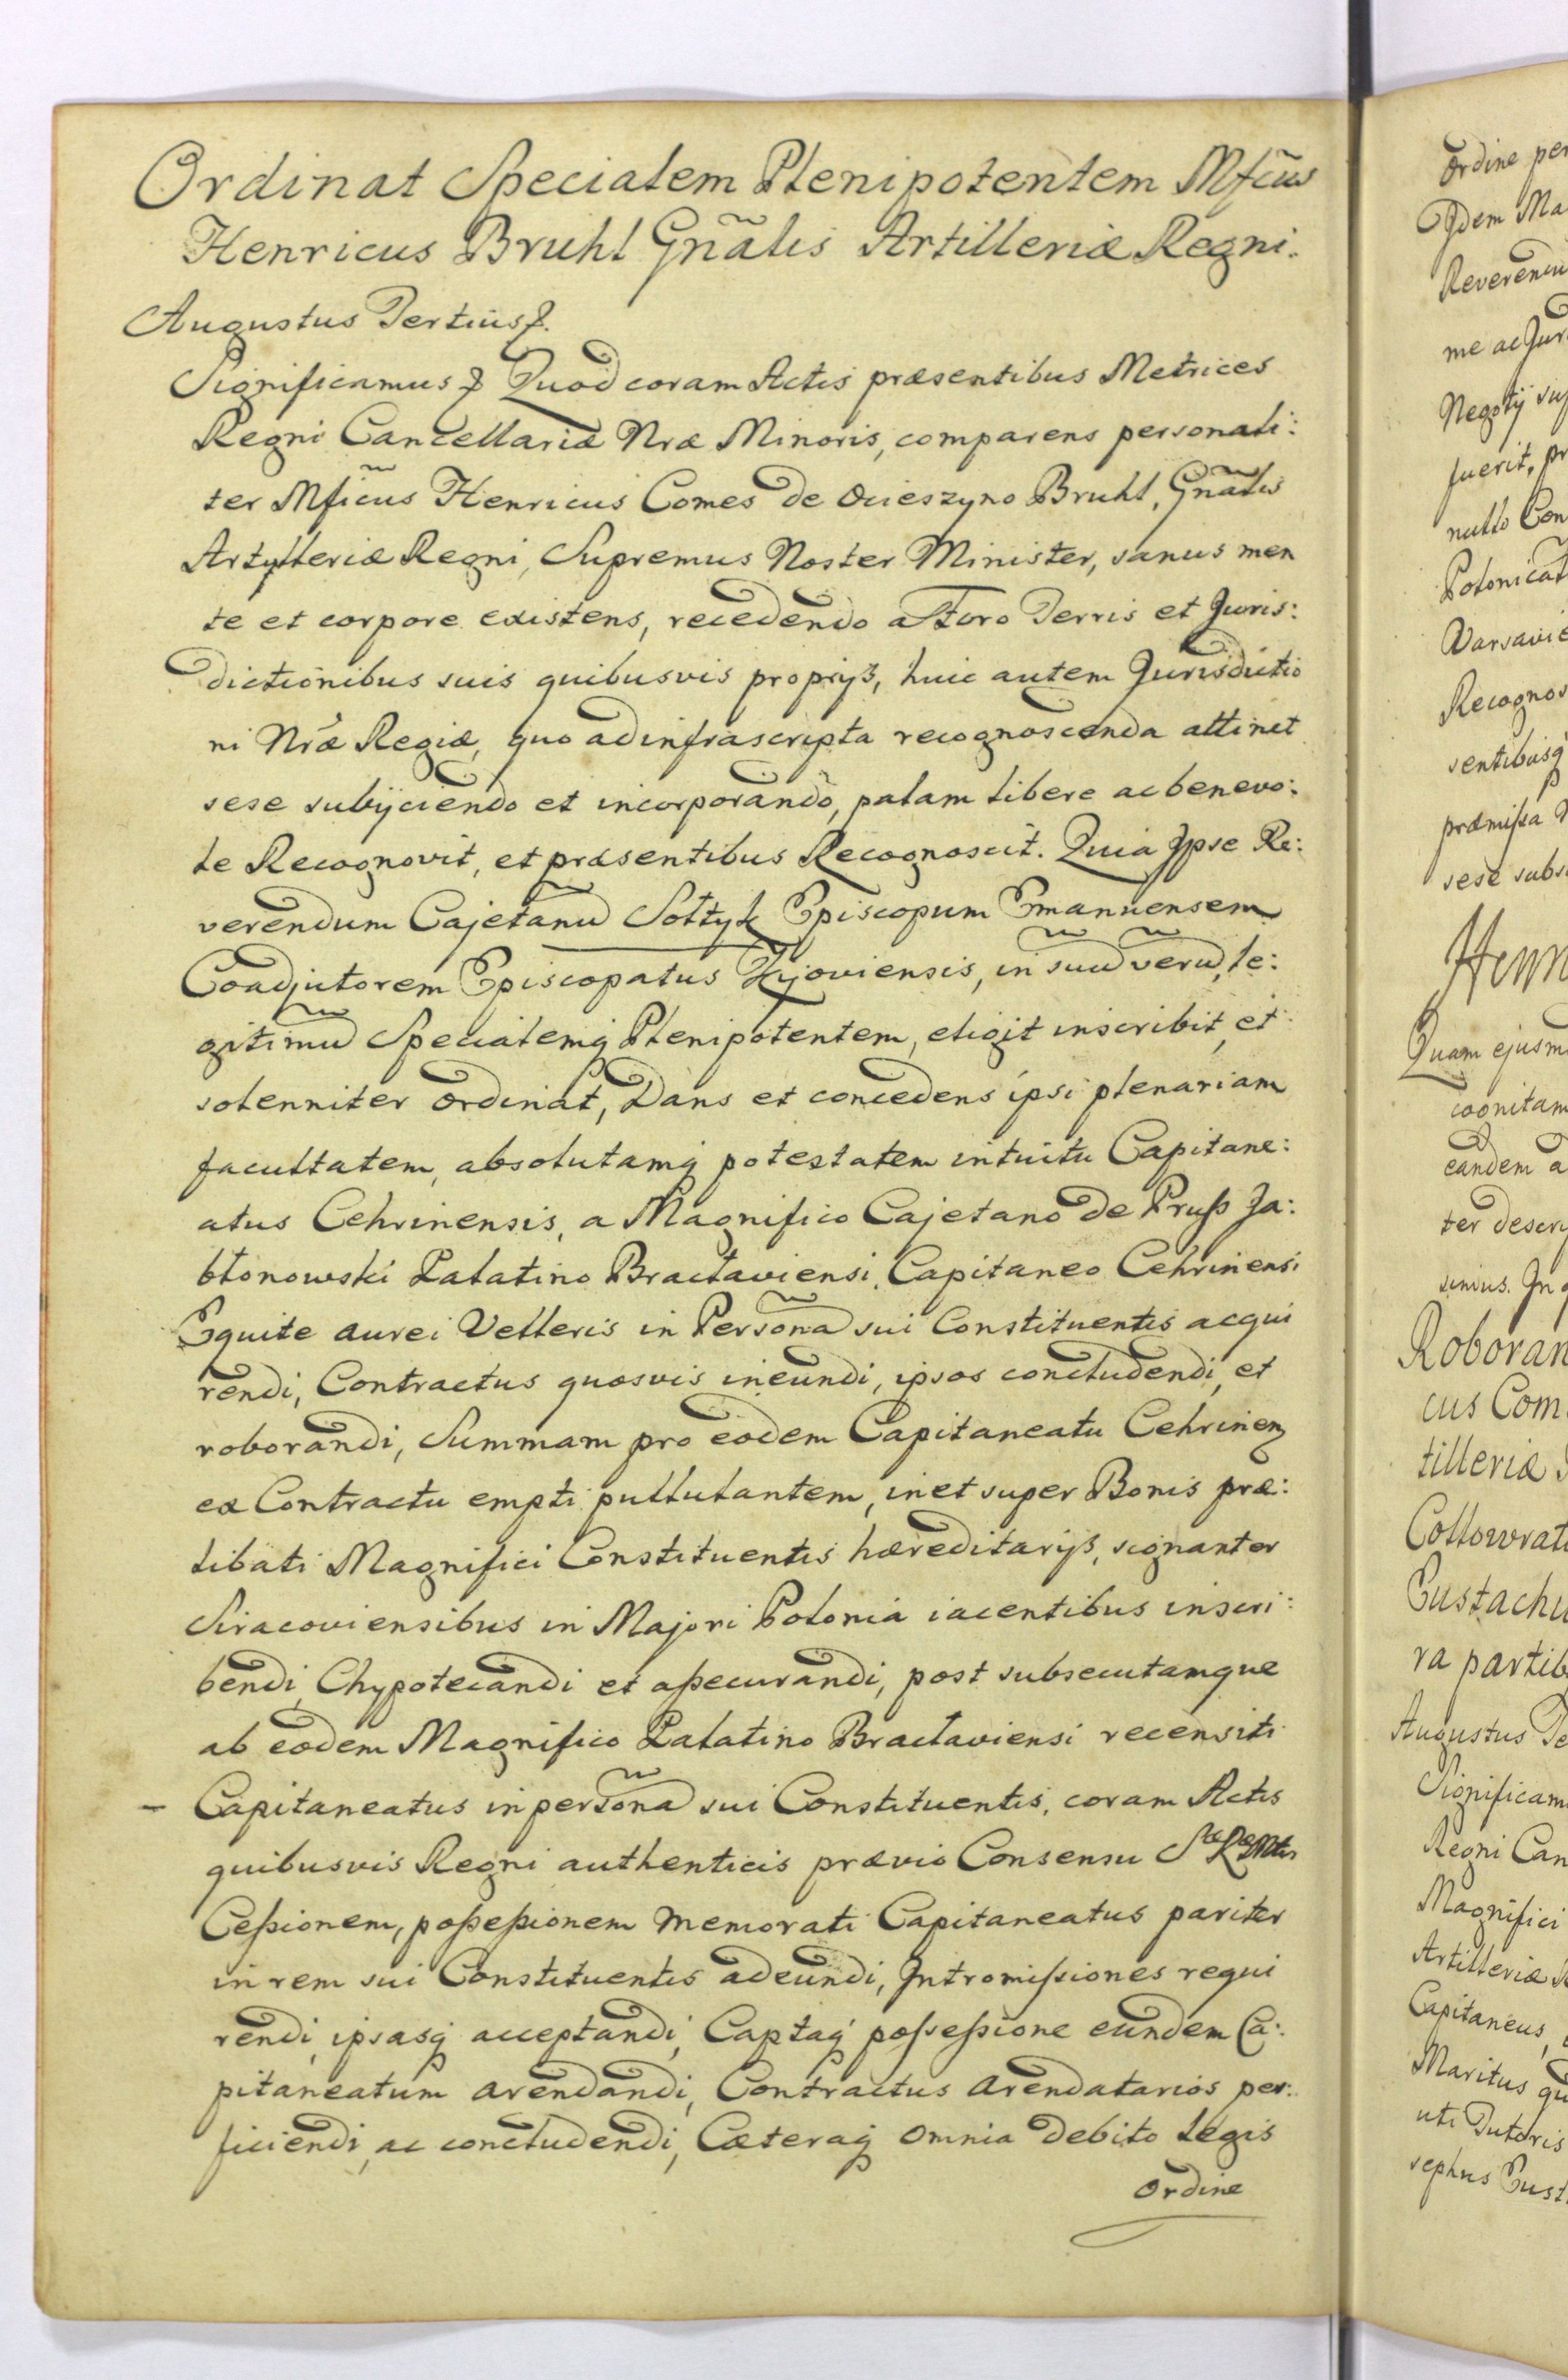 Ordinat Specialem Plenipotentem Mfcũs
Henricus Bruhl Gñalis Artilleriæ Regni.
Augustus Tertius
Significamus Quod coram Actis præsentibus Metrices
Regni Cancellariæ Nræ Minoris, comparens personali:
ter Mficus Henricus Comes de Ocieszyno Bruhl, Gñalis
Artylleriæ Regni, Supremus Noster Minister, sanus men
te et corpore existens, recedendo a Foro Terris et Juris:
dictionibus suis quibusvis proprijs, huic autem Jurisdictio
ni Nræ Regiæ, quo ad infrascripta recognoscenda attinet
sese subijciendo et incorporando, palam libere ac benevo:
le Recognovit, et præsentibus Recognoscit. Quia Ipse Re:
verendum Cajetanũ Sołtyk Episcopum Emanuensem
Coadjutorem Episcopatus Kijoviensis, in suũ verũ, le:
gitimũ Specialemq Plenipotentem, eligit inscribit, et
solenniter ordinat, Dans et concedens ipsi plenariam
facultatem, absolutamq potestatem intuitu Capitane:
atus Cehrinensis, a Magnifico Cajetano de Pruss Ja:
błonowski Palatino Bracłaviensi, Capitaneo Cehrinensi
Equite aurei Velleris in Persona sui Constituentis acqui
rendi, Contractus quosvis ineundi, ipsos concludendi, et
roborandi, Summam pro eodem Capitaneatu Cehrinen
ex Contractu empti pullulantem, in et super Bonis præ:
libati Magnifici Constituentis hæreditarijs, signanter
Siracoviensibus in Majori Polonia iacentibus inscri:
bendi, Chypotecandi et assecurandi, post subsecutamque
ab eodem Magnifico Palatino Bracłaviensi recensiti
– Capitaneatus in persona sui Constituentis, coram Actis
quibusvis Regni authenticis prævio Consensu Sæ Ræ Mtis
Cessionem, possessionem memorati Capitaneatus pariter
in rem sui Constituentis adeundi, Intromissiones requi
rendi, ipsasq acceptandi, Captaq possessione eundem Ca:
pitaneatum arendandi, Contractus arendatarios per:
ficiendi, ac concludendi, Cæteraq omnia debito Legis
ordine